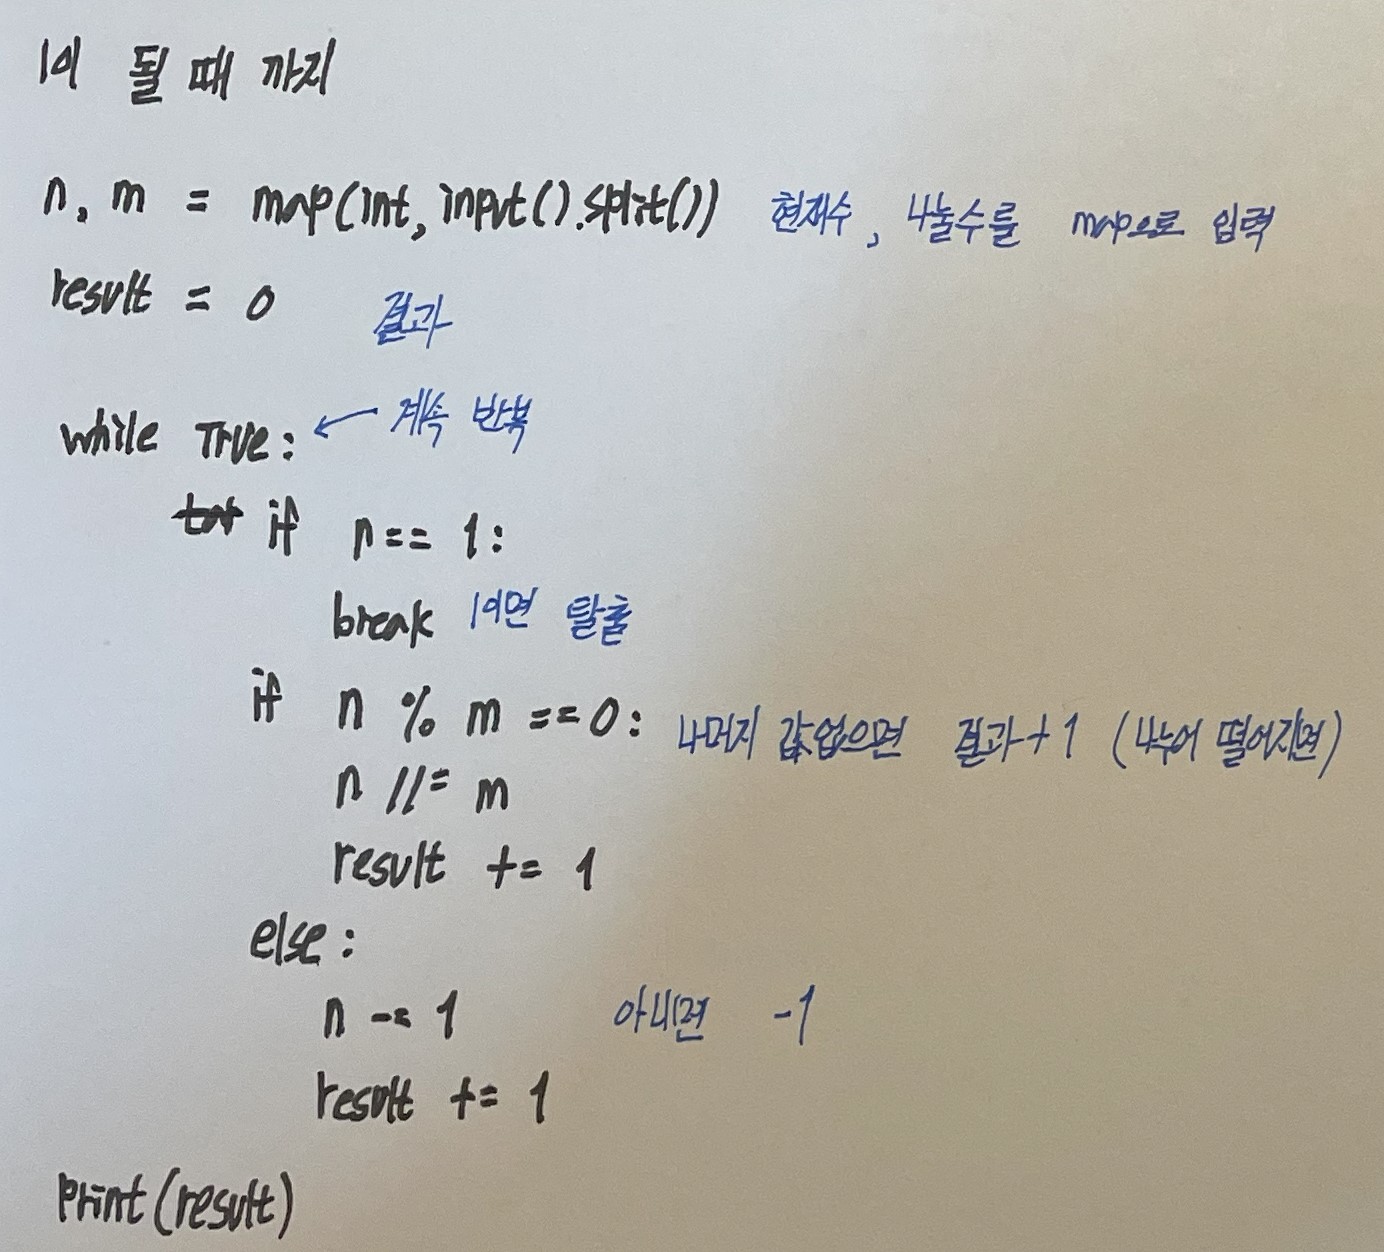 1이 될 때 까지
n, m = map(int, input().split()) 현재수, 나눌수를 map으로 입력
result = 0 결과
while True: ← 계속 반복
if n == 1:
break 1이면 탈출
if n % m == 0: 나머지 값 없으면 결과+1 (나누어 떨어지면)
n //= m
result += 1
else:
n -= 1 아니면 -1
result += 1
print(result)